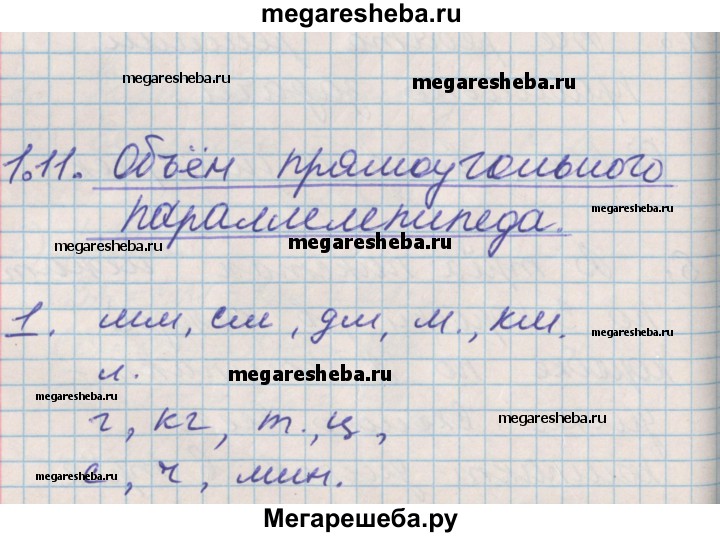 megaresheba.ru
megaresheba.ru megaresheba.ru
1.11. Объём прямоугольного
megaresheba.ru
параллелепипеда.
megaresheba.ru megaresheba.ru
1. мм, см, дм, м., км.
megaresheba.ru
л. megaresheba.ru
megaresheba.ru
г, кг, т., ц, megaresheba.ru
megaresheba.ru
с, ч, мин.
Мегарешеба.ру